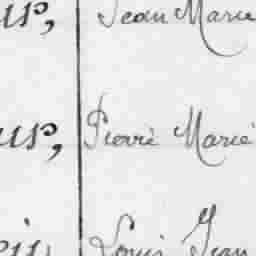 us, Jean Marie
us, Pierrè Marié
Louis Jean